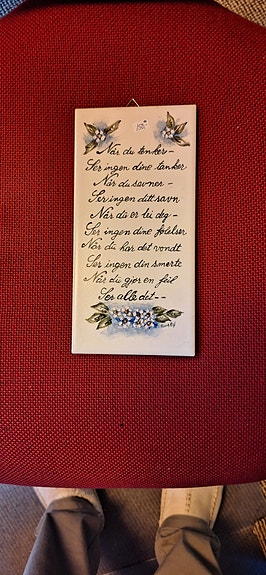 Når du tenker -
Ser ingen dine tanker
Når du savner -
Ser ingen ditt savn
Når du er lei deg -
Ser ingen dine følelser
Når du har det vondt
Ser ingen din smerte
Når du gjør en feil
Ser alle det - -